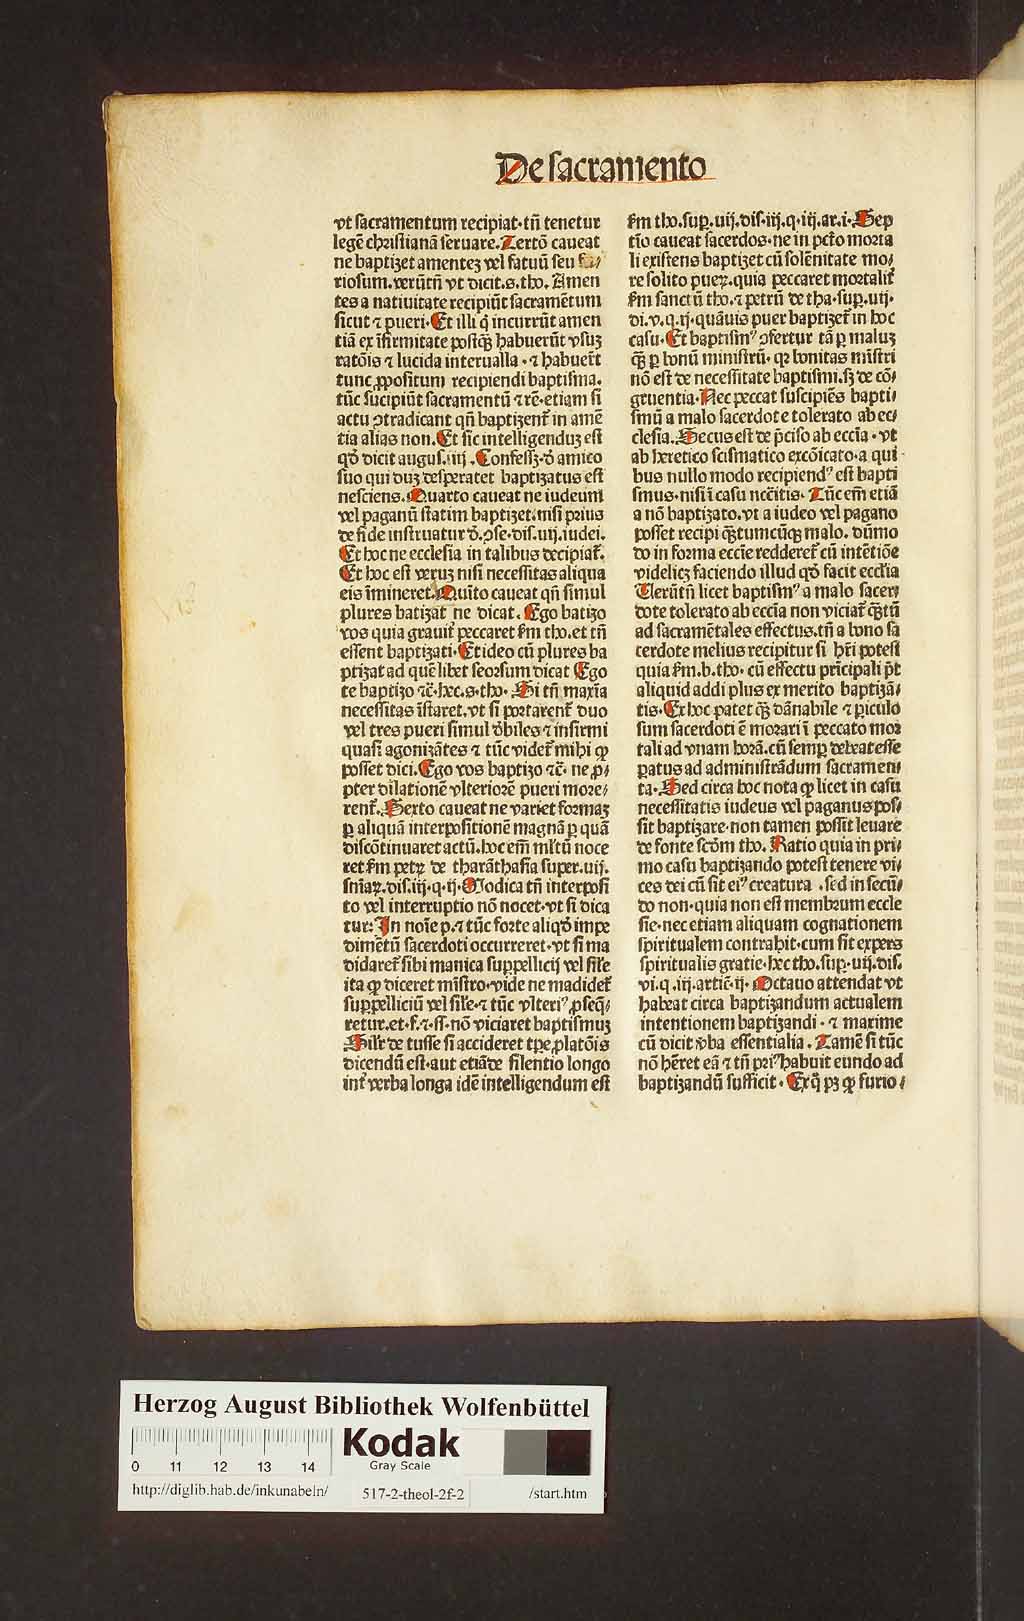 De sacramento
vt sacramentum recipiat·tñ tenetur
legē christianā seruare. Tertō caueat
ne baptizet amentez vel fatuū seu fu/
riosum. verūtñ vt dicit.s.tho. Amen
tes a natiuitate recipiūt sacramētum
sicut ⁊ pueri·Et illi q̇ incurrūt amen
tiā ex ĩfirmitate postqꝫ habuerūt vsuꝫ
ratōis ⁊ lucida interualla·⁊ habuerūt
tunc ꝓpositum recipiendi baptisma.
tūc sucipiūt sacramentū ⁊ rē·etiam si
actu ꝯtradicant qñ baptizent᷑ in amē
tia alias non. Et sic intelligenduꝫ est
qd̓ dicit augus.iiij. Confess·d̓ amico
suo qui duꝫ desperatet baptizatus est
nesciens. Quarto caueat ne iudeum
vel paganū statim baptizet.nisi prius
de fide instruatur d̓.ꝯse.dis.iiij.iudei.
Et hoc ne ecclesia in talibus decipiat᷑.
Et hoc est veruꝫ nisi necessitas aliqua
eis ĩmineret. Quĩto caueat qñ simul
plures batizat ne dicat. Ego batizo
vos quia grauit᷑ peccaret s̃m tho.et tñ
essent baptizati·Et ideo cū plures ba
ptizat ad quēlibet seorsum dicat Ego
te baptizo ⁊c̃·hec.s.tho· Si tñ maxĩa
necessitas ĩstaret.vt si portarent᷑ duo
vel tres pueri simul d̓biles ⁊ insirmi
quasi agonizātes ⁊ tūc videt᷑ mihi ꝙ
posset dici. Ego vos baptizo ⁊c̃· ne ꝓ/
pter dilationē vlteriorē pueri more/
rent᷑. Serto caueat ne variet formaꝫ
ꝑ aliquā interpositionē magnā ꝑ quā
discōtinuaret actū.hoc em̃ ml̃tū noce
ret s̃m petꝝ de tharāthasia super.uij.
sñiaꝝ.dis.iij·q·ij·Modica tñ interposi
to vel interruptio nō nocet·vt si dica
tur: In noĩe p.⁊ tūc forte aliqd̓ impe
dimētū sacerdoti occurreret·vt si ma
didaret᷑ sibi manica suppellicij vel sil̃e
ita ꝙ diceret mĩstro·vide ne madidet᷑
suppelliciū vel sil̃e·⁊ tūc vlteriꝰ ꝓseq̄/
retur.et·f.⁊·ss·nō viciaret baptismuꝫ
Sil̃r de tusse si accideret tp̃e platōis
dicendū est·aut etiā de silentio longo
int᷑ verba longa idē intelligendum est
s̃m tho.sup.uij.dis.iij.q.iij.ar.i·Sep
tĩo caueat sacerdos·ne in pctō morta
li existens baptizet cū solēnitate mo/
re solito pueꝝ.quia peccaret mortalit᷑
s̃m sanctū tho.⁊ petrū de tha·sup.uij·
di.v.q.ij·quāuis puer baptizet᷑ in hoc
casu·Et baptismꝰ ꝯfertur tā ꝑ maluꝫ
qꝫ ꝑ bonū ministrū·qꝛ bonitas mĩstri
nō est de necessitate baptismi.sꝫ de cō/
gruentia·Nec peccat suscipiēs bapti/
smū a malo sacerdote tolerato ab ec/
clesia. Secus est de p̃ciso ab eccĩa·vt
ab heretico scismatico excōicato·a qui·
bus nullo modo recipiendꝰ est bapti
smus·nisi ĩ casu nc̃citis· Tūc em̃ etiā
a nō baptizato.vt a iudeo vel pagano
posset recipi qꝫtumcūqꝫ malo. dūmo
do in forma eccĩe redderet᷑ cū intētiōe
videlicꝫ faciendo illud qd̓ facit eccl̃ia
Verūtñ licet baptismꝰ a malo sacer/
dote tolerato ab eccĩa non viciat᷑ qꝫtū
ad sacramētales effectus.tñ a bono sa
cerdote melius recipitur si hr̃i potest
quia s̃m.b.tho· cū effectu prĩcipali p̃t
aliquid addi plus ex merito baptizā/
tis·Ex hoc patet qꝫ dānabile ⁊ ꝑiculo
sum sacerdoti ē morari ĩ peccato mor
tali ad vnam horā.cū semꝑ debeat esse
ꝑatus ad administrādum sacramen/
ta·Sed circa hoc nota ꝙ licet in casu
necessitatis iudeus vel paganus pos/
sit baptizare·non tamen possit leuare
de fonte scōm tho. Ratio quia in pri/
mo casu baptizando potest tenere vi/
ces dei cū sit eiꝰ creatura.sed in secū/
do non·quia non est membrum eccle
sie·nec etiam aliquam cognationem
spiritualem contrahit·cum sit expers
spiritualis gratie·hec tho.sup·uij.dis.
vi.q.iij.artic̃·ij·Octauo attendat vt
habeat circa baptizandum actualem
intentionem baptizandi·⁊ maxime
cū dicit v̓ba essentialia. Tamē si tūc
nō hēret eā ⁊ tñ priꝰ habuit eundo ad
baptizandū sufficit·Ex q̊ pꝫ ꝙ furio/
Herzog August Bibliothek Wolfenbüttel
0 11 12 13 14
Kodak
Gray Scale
http://diglib.hab.de/inkunabeln/ 517-2-theol-2f-2 /start.htm